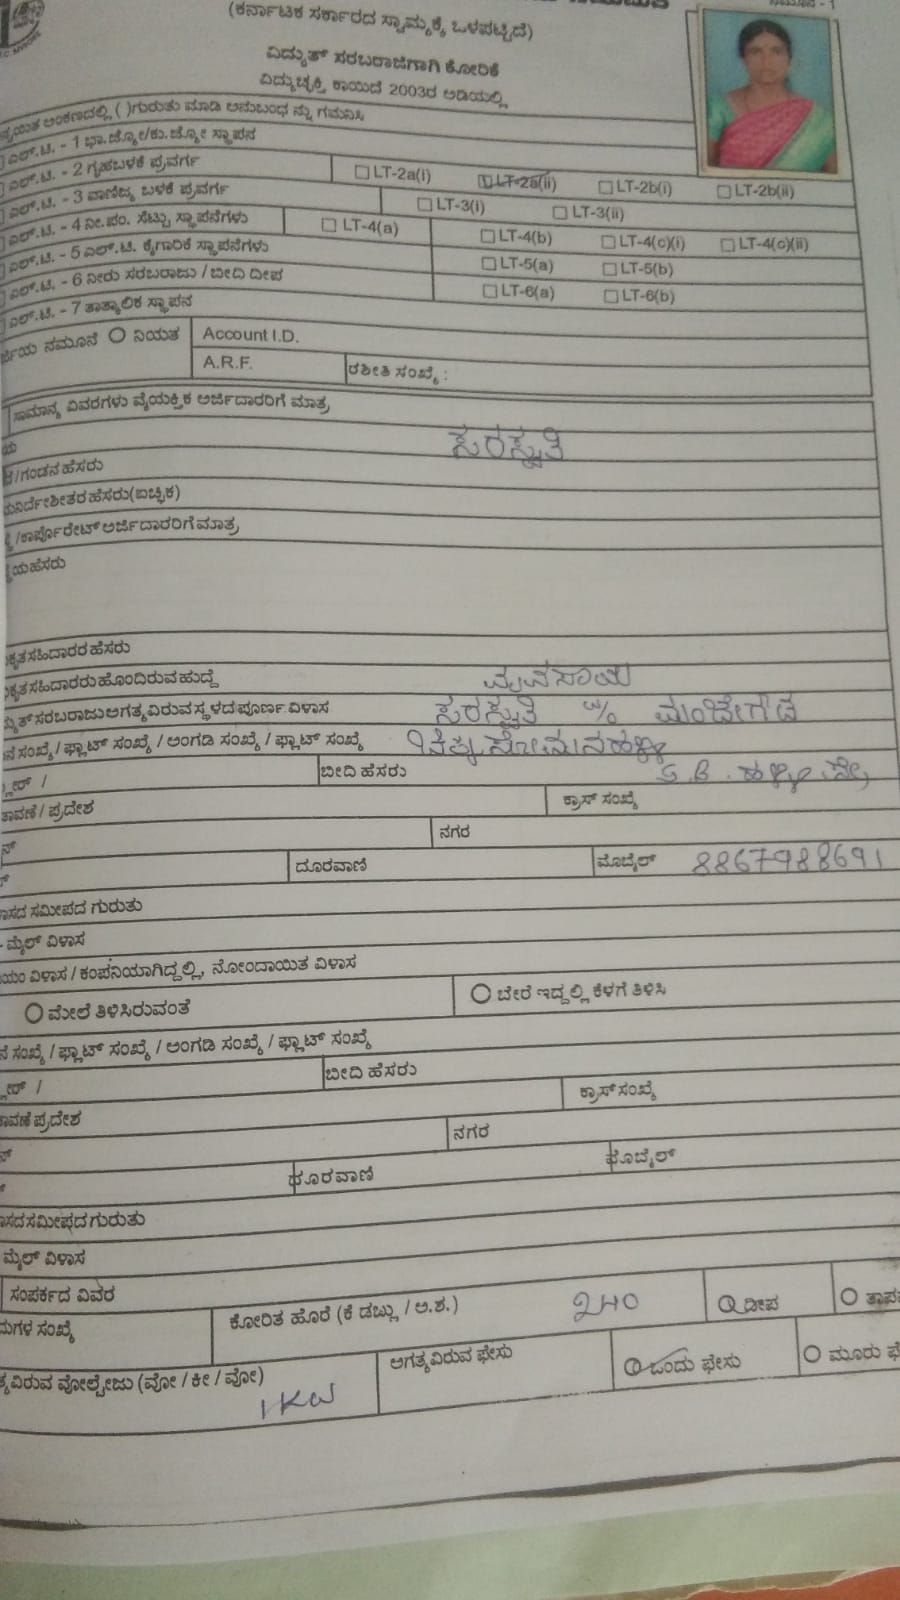 ನಮೂನೆ - 1
(ಕರ್ನಾಟಕ ಸರ್ಕಾರದ ಸ್ವಾಮ್ಯಕ್ಕೆ ಒಳಪಟ್ಟಿದೆ)
ವಿದ್ಯುತ್ ಸರಬರಾಜಿಗಾಗಿ ಕೋರಿಕೆ
ವಿದ್ಯುಚ್ಛಕ್ತಿ ಕಾಯಿದೆ 2003ರ ಅಡಿಯಲ್ಲಿ
ಅಂಕಣದಲ್ಲಿ ( )ಗುರುತು ಮಾಡಿ ಅನುಬಂಧ ನ್ನು ಗಮನಿಸಿ
ಎಲ್.ಟಿ. - 1 ಭಾ.ಜ್ಯೋ/ಕು.ಜ್ಯೋ ಸ್ಥಾಪನ
ಎಲ್.ಟಿ. - 2 ಗೃಹಬಳಕೆ ಪ್ರವರ್ಗ LT-2a(i) LT-2a(ii) LT-2b(i) LT-2b(ii)
ಎಲ್.ಟಿ. - 3 ವಾಣಿಜ್ಯ ಬಳಕೆ ಪ್ರವರ್ಗ LT-3(i) LT-3(ii)
ಎಲ್.ಟಿ. - 4 ನೀ.ಪಂ. ಸೆಟ್ಟು ಸ್ಥಾಪನೆಗಳು LT-4(a) LT-4(b) LT-4(c)(i) LT-4(c)(ii)
ಎಲ್.ಟಿ. - 5 ಎಲ್.ಟಿ. ಕೈಗಾರಿಕೆ ಸ್ಥಾಪನೆಗಳು LT-5(a) LT-5(b)
ಎಲ್.ಟಿ. - 6 ನೀರು ಸರಬರಾಜು / ಬೀದಿ ದೀಪ LT-6(a) LT-6(b)
ಎಲ್.ಟಿ. - 7 ತಾತ್ಕಾಲಿಕ ಸ್ಥಾಪನ
ನಮೂನೆ ನಿಯತ Account I.D.
A.R.F. ರಶೀತಿ ಸಂಖ್ಯೆ :
ಸಾಮಾನ್ಯ ವಿವರಗಳು ವೈಯಕ್ತಿಕ ಅರ್ಜಿದಾರರಿಗೆ ಮಾತ್ರ
ಸರಸ್ವತಿ
/ಗಂಡನ ಹೆಸರು
ಹೆಸರು(ಐಚ್ಛಿಕ)
/ಕಾರ್ಪೊರೇಟ್ ಅರ್ಜಿದಾರರಿಗೆ ಮಾತ್ರ
ಯಹೆಸರು
ಕೃತಸಹಿದಾರರ ಹೆಸರು
ಕೃತಸಹಿದಾರರು ಹೊಂದಿರುವ ಹುದ್ದೆ ವ್ಯವಸಾಯ
ಸರಬರಾಜು ಅಗತ್ಯವಿರುವ ಸ್ಥಳದ ಪೂರ್ಣ ವಿಳಾಸ ಸರಸ್ವತಿ w/o ಮಂಚೇಗೌಡ
ಸಂಖ್ಯೆ / ಫ್ಲಾಟ್ ಸಂಖ್ಯೆ / ಅಂಗಡಿ ಸಂಖ್ಯೆ / ಫ್ಲಾಟ್ ಸಂಖ್ಯೆ
ಬೀದಿ ಹೆಸರು
ತಾವಣೆ / ಪ್ರದೇಶ ಕ್ರಾಸ್ ಸಂಖ್ಯೆ
ನಗರ
ದೂರವಾಣಿ ಮೊಬೈಲ್ 8867988691
ಸಮೀಪದ ಗುರುತು
ಮೈಲ್ ವಿಳಾಸ
ಯಂ ವಿಳಾಸ / ಕಂಪನಿಯಾಗಿದ್ದಲ್ಲಿ, ನೋಂದಾಯಿತ ವಿಳಾಸ
ಮೇಲೆ ತಿಳಿಸಿರುವಂತೆ ಬೇರೆ ಇದ್ದಲ್ಲಿ ಕೆಳಗೆ ತಿಳಿಸಿ
ಸಂಖ್ಯೆ / ಫ್ಲಾಟ್ ಸಂಖ್ಯೆ / ಅಂಗಡಿ ಸಂಖ್ಯೆ / ಫ್ಲಾಟ್ ಸಂಖ್ಯೆ
ಬೀದಿ ಹೆಸರು
ಪ್ರದೇಶ ಕ್ರಾಸ್ ಸಂಖ್ಯೆ
ನಗರ
ದೂರವಾಣಿ ಮೊಬೈಲ್
ಸಮೀಪದ ಗುರುತು
ಮೈಲ್ ವಿಳಾಸ
ಸಂಪರ್ಕದ ವಿವರ
ಸಂಖ್ಯೆ ಕೋರಿತ ಹೊರೆ (ಕೆ ಡಬ್ಲು / ಅ.ಶ.) 240 ದೀಪ
ವೋಲ್ಟೇಜು (ವೋ / ಕೀ / ವೋ) 1KW ಅಗತ್ಯವಿರುವ ಫೇಸು ಒಂದು ಫೇಸು ಮೂರು